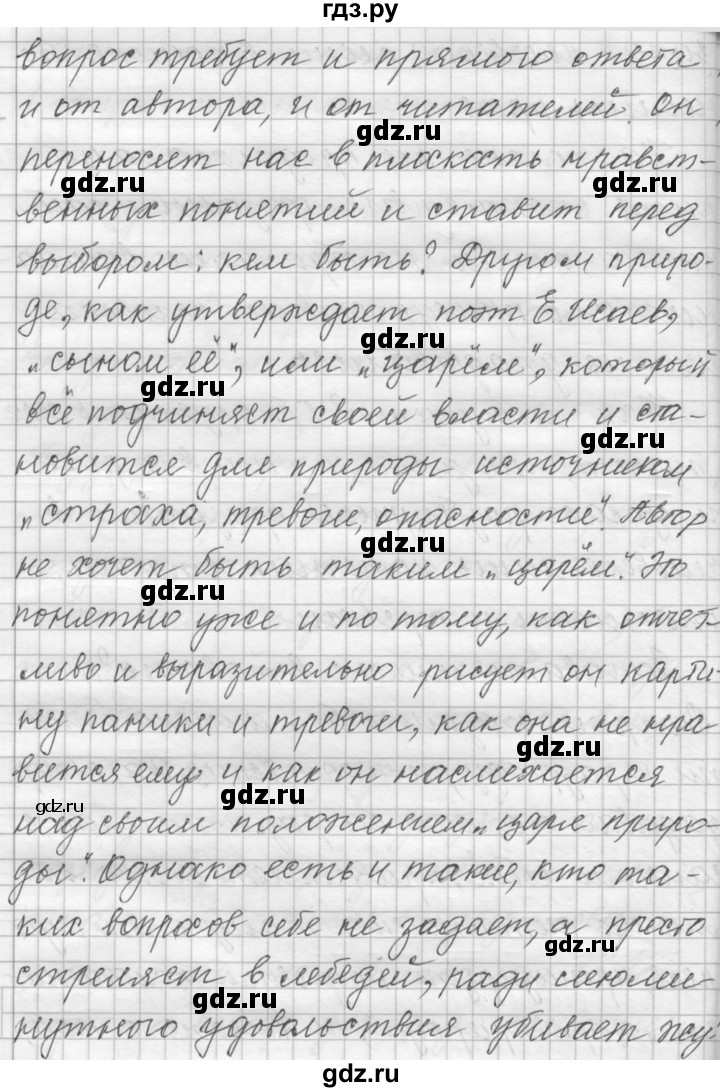 гдз.ру
вопрос требует и прямого ответа
и от автора, и от читателей. Он
gdz.ru
переносит нас в плоскость нравст-
gdz.ru gdz.ru
венных понятий и ставит перед
выбором: кем быть? Другом приро-
gdz.ru
де, как утверждает поэт Е Исаев,
gdz.ru
„сыном её", или „царём", который
gdz.ru
всё подчиняет своей власти и ста-
gdz.ru
новится для природы источником
„страха, тревоги, опасности". Автор
gdz.ru
не хочет быть таким „царём". Это
gdz.ru
понятно уже и по тому, как отчет-
ливо и выразительно рисует он карти-
ну паники и тревоги, как она не нра-
gdz.ru
вится ему и как он насмехается
gdz.ru
gdz.ru
над своим положением „царя приро-
ды". Однако есть и такие, кто та-
ких вопросов себе не задает, а просто
gdz.ru
стреляет в лебедей, ради сиюми-
gdz.ru
нутного удовольствия убивает жу-